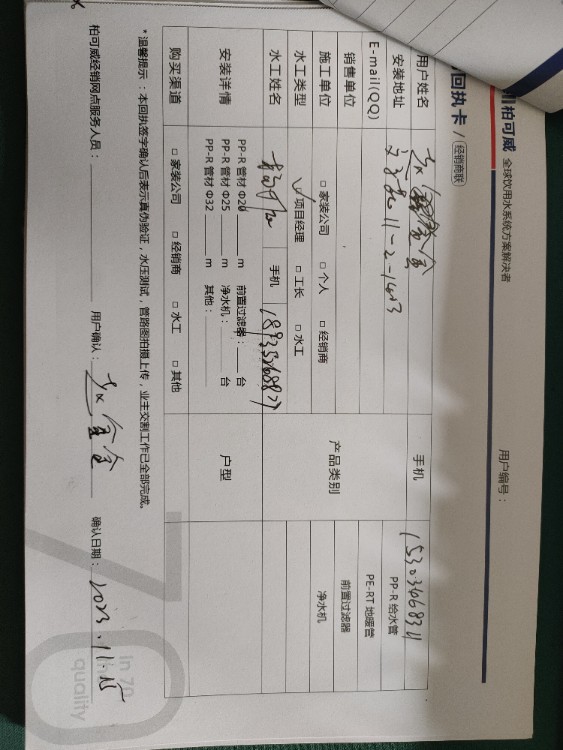 柏可威 全球饮用水系统方案解决者
用户编号：
回执卡 / 经销商联
用户姓名
手机 15303468311
安装地址 11-2-1403
E-mail(QQ)
销售单位
施工单位 □ 家装公司 □ 个人 □ 经销商
水工类型 ✓ 项目经理 □ 工长 □ 水工
水工姓名
手机
产品类别
PP-R 给水管
PE-RT 地暖管
前置过滤器
净水机
安装详情
PP-R 管材 Φ20 m 前置过滤器： 台
PP-R 管材 Φ25 m 净水机： 台
PP-R 管材 Φ32 m 其他：
户型
购买渠道 □ 家装公司 □ 经销商 □ 水工 □ 其他
*温馨提示：本回执签字确认后表示真伪验证，水压测试，管路图拍摄上传，业主交割工作已全部完成。
柏可威经销网点服务人员：
用户确认：
确认日期： 2023.11.15
70
In 70
quality